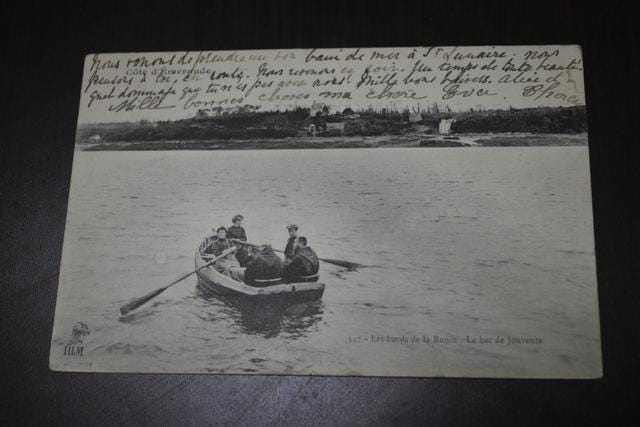 Nous venons de prendre un bon bain de mer à St Lunaire. Nous
Côte d'Emeraude
pensons à toi, en route. Nous rentrons ce soir. Un temps de toute beauté.
Quel dommage que tu n'es pas avec nous. Mille bons baisers. Alice
Mille bonnes choses ma chère
147 - Les bords de la Rance - Le bac de Jouvente
HLM